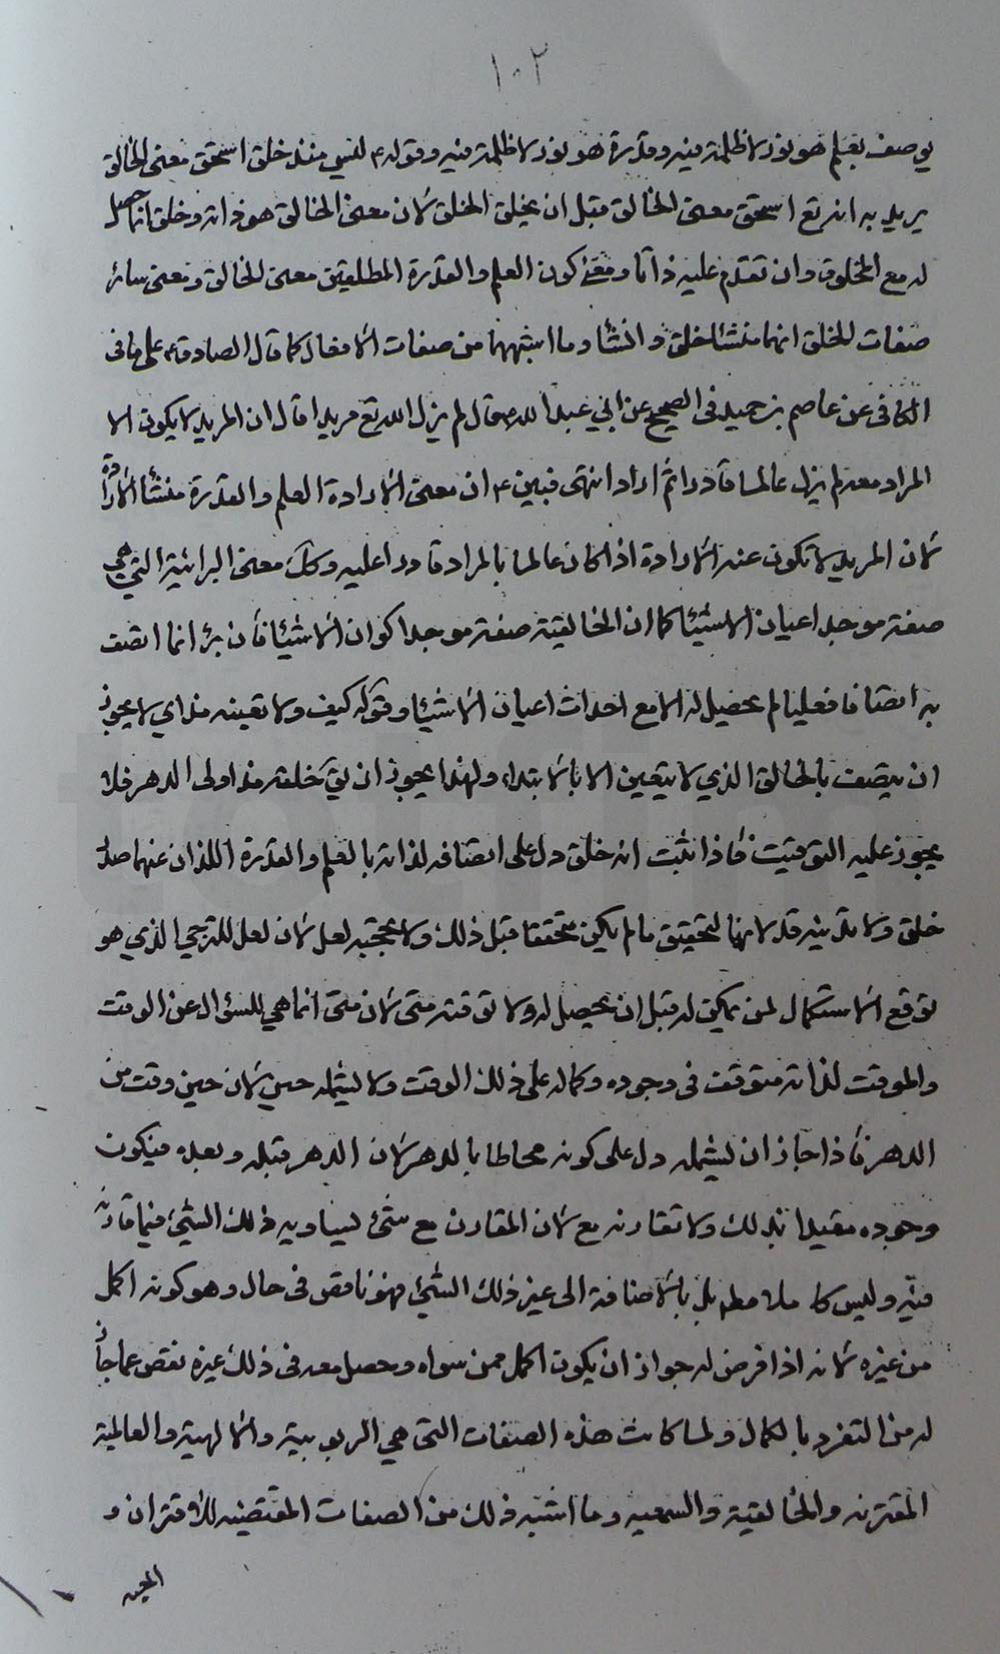 ١٠٢
يوصف بعلم هو نور لا ظلمة فيه وقدرة هو نور لا ظلمة فيه وقوله ع ليس منذ خلق استحق معنى الخالق
يريد به انه تع استحق معنى الخالق قبل ان يخلق الخلق لان معنى الخالق هو ذاته وخلق انما حصل
له مع المخلوق وان تقدم عليه ذاتا ومعنى كون العلم والقدرة المطلقين معنى الخالق ومعنى سائر
صفات الخلق انهما منشئا خلق وانشأ وما اشبههما من صفات الافعال كما قال الصادق ع على ما في
الكافي عن عاصم بن حميد في الصحيح عن ابي عبد الله ع قال لم يزل الله تع مريدا قال ان المريد لا يكون الا
المراد معه لم يزل عالما قادرا ثم اراد انتهى فبين ع ان معنى الارادة العلم والقدرة منشأ الارادة
لان المريد لا تكون عنه الارادة اذا كان عالما بالمراد قادرا عليه وكك معنى البرائية التي هي
صفة موجد اعيان الاشيئا كما ان الخالقية صفة موجد اكوان الاشيئا فأن برء انما اتصف
به اتصافا فعليا لم يحصل له الا مع احداث اعيان الاشيئا وقوله كيف ولا تعينه مذ اي لا يجوز
ان يتصف بالخالق الذي لا يتعين الا بالابتداء ولهذا يجوز ان يق خلقه مذ اولى الدهر فلا
يجوز عليه التوقيت فأذا ثبت انه خلق دل على اتصافه لذاته بالعلم والقدرة اللذان عنهما صدر
خلق ولا تدنيه قد لانها لتحقيق ما لم يكن متحققا قبل ذلك ولا يحجبه لعل لان لعل للترجي الذي هو
توقع الاستكمال لمن يمكن له قبل ان يحصل له ولا توقته متى لان متى انما هي للسؤال عن الوقت
والموقت لذاته متوقف في وجوده وكماله على ذلك الوقت ولا يشمله حين لان حين وقت من
الدهر فأذا جاز ان يشمله دل على كونه محاطا بالدهر لان الدهر قبله وبعده فيكون
وجوده مقيدا بذلك ولا تقارنه مع لان المقارن مع شئ يساويه ذلك الشئ فيما قارنه
فيه وليس كاملا مطم بل بالاضافة الى غير ذلك الشئ فهو ناقص في حال وهو كونه اكمل
من غيره لانه اذا فرض له جواز ان يكون اكمل ممن سواه وحصل معه في ذلك غيره نقص عما جاز
له من التفرد بالكمال ولما كانت هذه الصفات التي هي الربوبية والالهية والعالمية
المقترنه والخالقية والسمعيه وما اشبه ذلك من الصفات المقتضيه للاقتران و